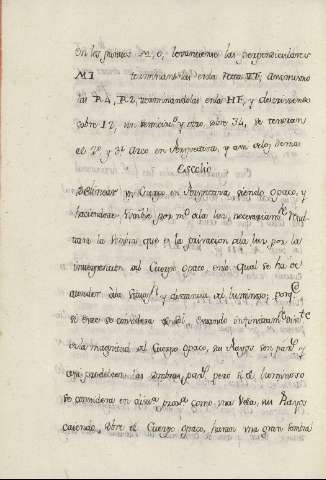 En los puntos M, O, levantense las perpendiculares
M I terminandolas en la recta VF, asimismo
las R4, R2, terminandolas en la HF, y descriviendo
sobre 12, un semicirc.º y otro sobre 34, se tendran
el 2º y 3º Arco en Perspectiva, y asi de los demas
Escolio
Delinear un Cuerpo en Perspectiva siendo opaco, y
haciendose visible por mº de la luz, necesariam.te
tara la sombra que es la privacion de la luz por la
interposicion del Cuerpo opaco, en lo qual se ha de
atender a la situac.n y distancia del luminoso, porq.e
si este se considera el sol, estando infinitam.te dist.te
de la magnitud del Cuerpo opaco, sus Rayos son paral.s y
asi producen las sombras paral.s pero si el luminoso
se considera en dist.a prox.a como una Vela, sus Rayos
cayendo sobre el Cuerpo opaco, haran una gran sombra